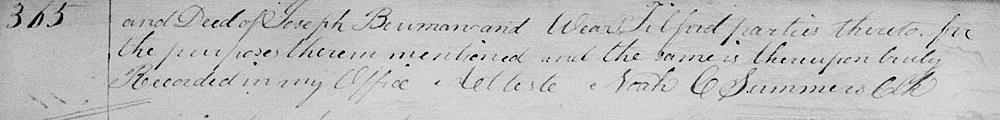 365 and Deed of Joseph Bowman and Wear Tilford parties thereto for
the purposes therein mentioned and the same is thereupon truly
Recorded in my Office Atteste Noah C Summers Clk